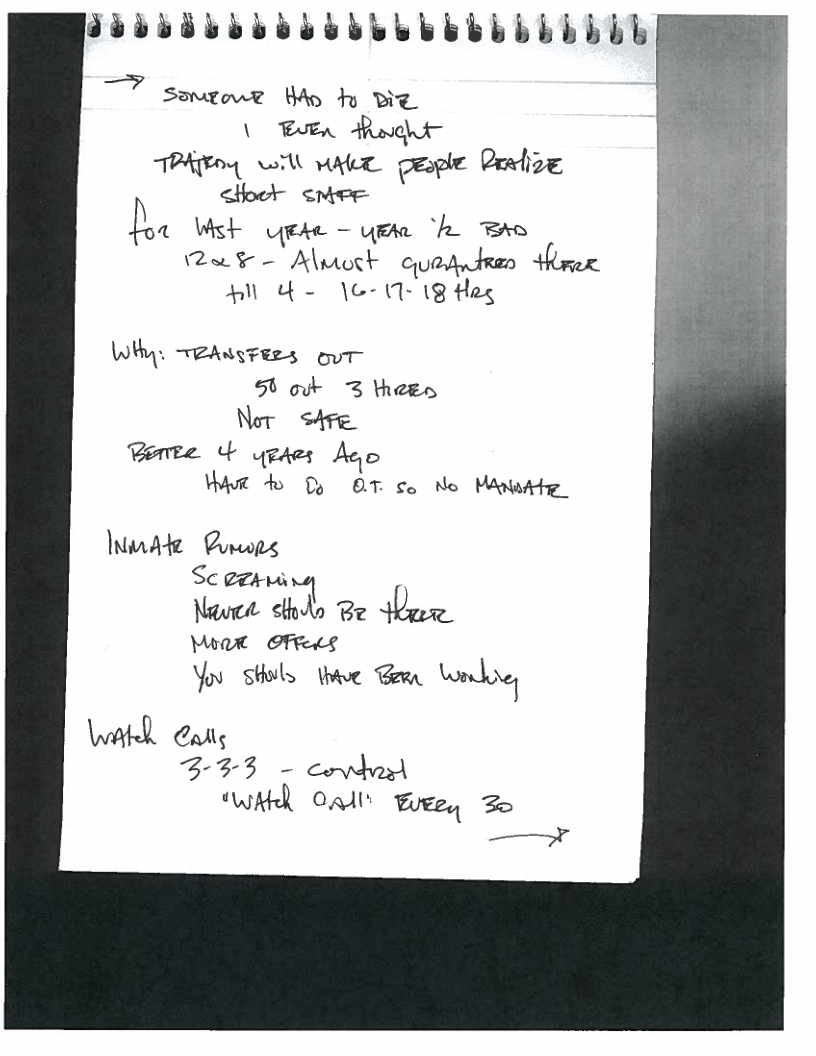 → SOMEONE HAD to DIE
I EVEN thought
TRAJEDY will MAKE PEOPLE REALIZE
SHORT STAFF
for LAST YEAR - YEAR ½ BAD
12 or 8 - Almost GURANTEED tHERE
till 4 - 16-17-18 HRS
WHY: TRANSFERS OUT
50 out 3 HIRED
NOT SAFE
BETTER 4 YEARS AGO
HAVE to DO O.T. SO NO MANDATE
INMATE RUMORS
SCREAMING
NEVER SHOULD BE tHERE
MORE OFFERS
YOU SHOULD HAVE BEEN Working
WAtch CAlls
3-3-3 - control
"WAtch CAll" EVERY 30
→